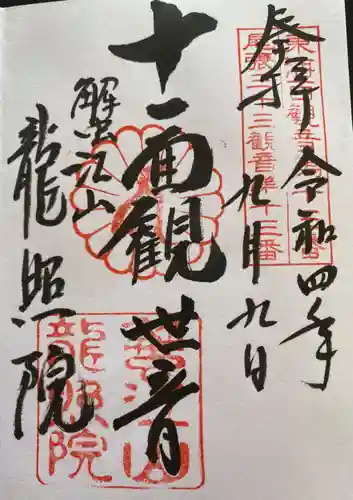 奉拝 令和四年
九月九日
十一面観世音
蟹江山
龍照院
尾張三十三観音第十三番
龍照院